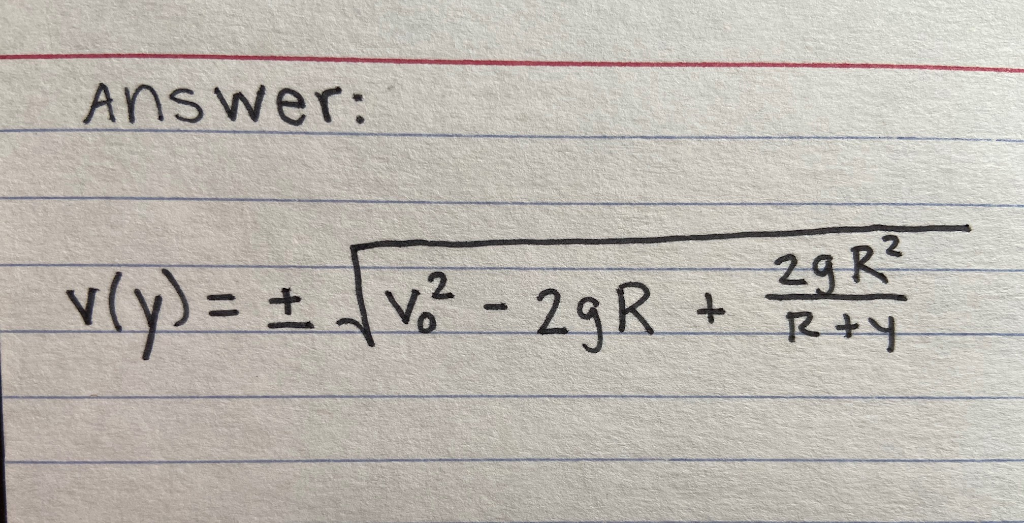 Answer:
v(y) = ± √(v₀² - 2gR + 2gR²/(R+y))